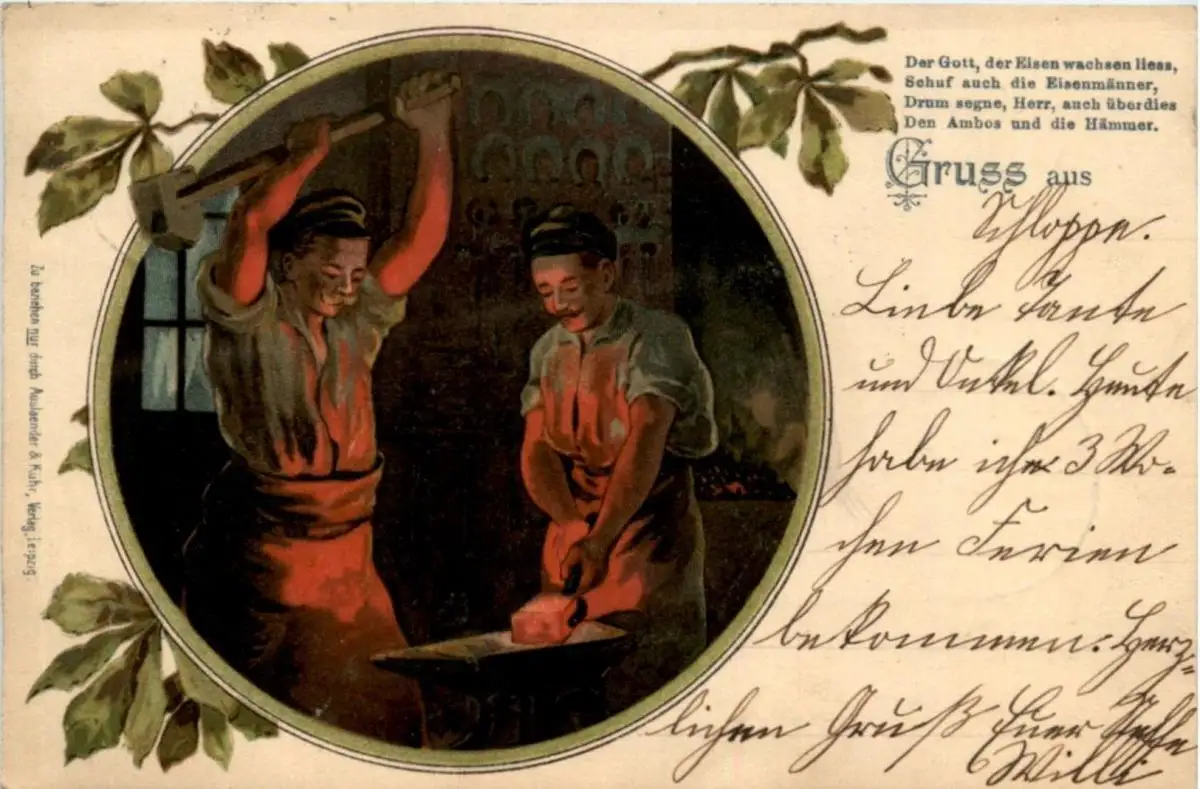 Der Gott, der Eisen wachsen liess,
Schuf auch die Eisenmänner,
Drum segne, Herr, auch überdies
Den Ambos und die Hämmer.
Gruss aus
Schloppe.
Liebe Tante
und Onkel. Heute
habe ich 3 Wo-
chen Ferien
bekommen. Herz-
lichen Gruß Euer
Willi
Zu beziehen nur durch Auslaender & Kuhr, Verlag, Leipzig.